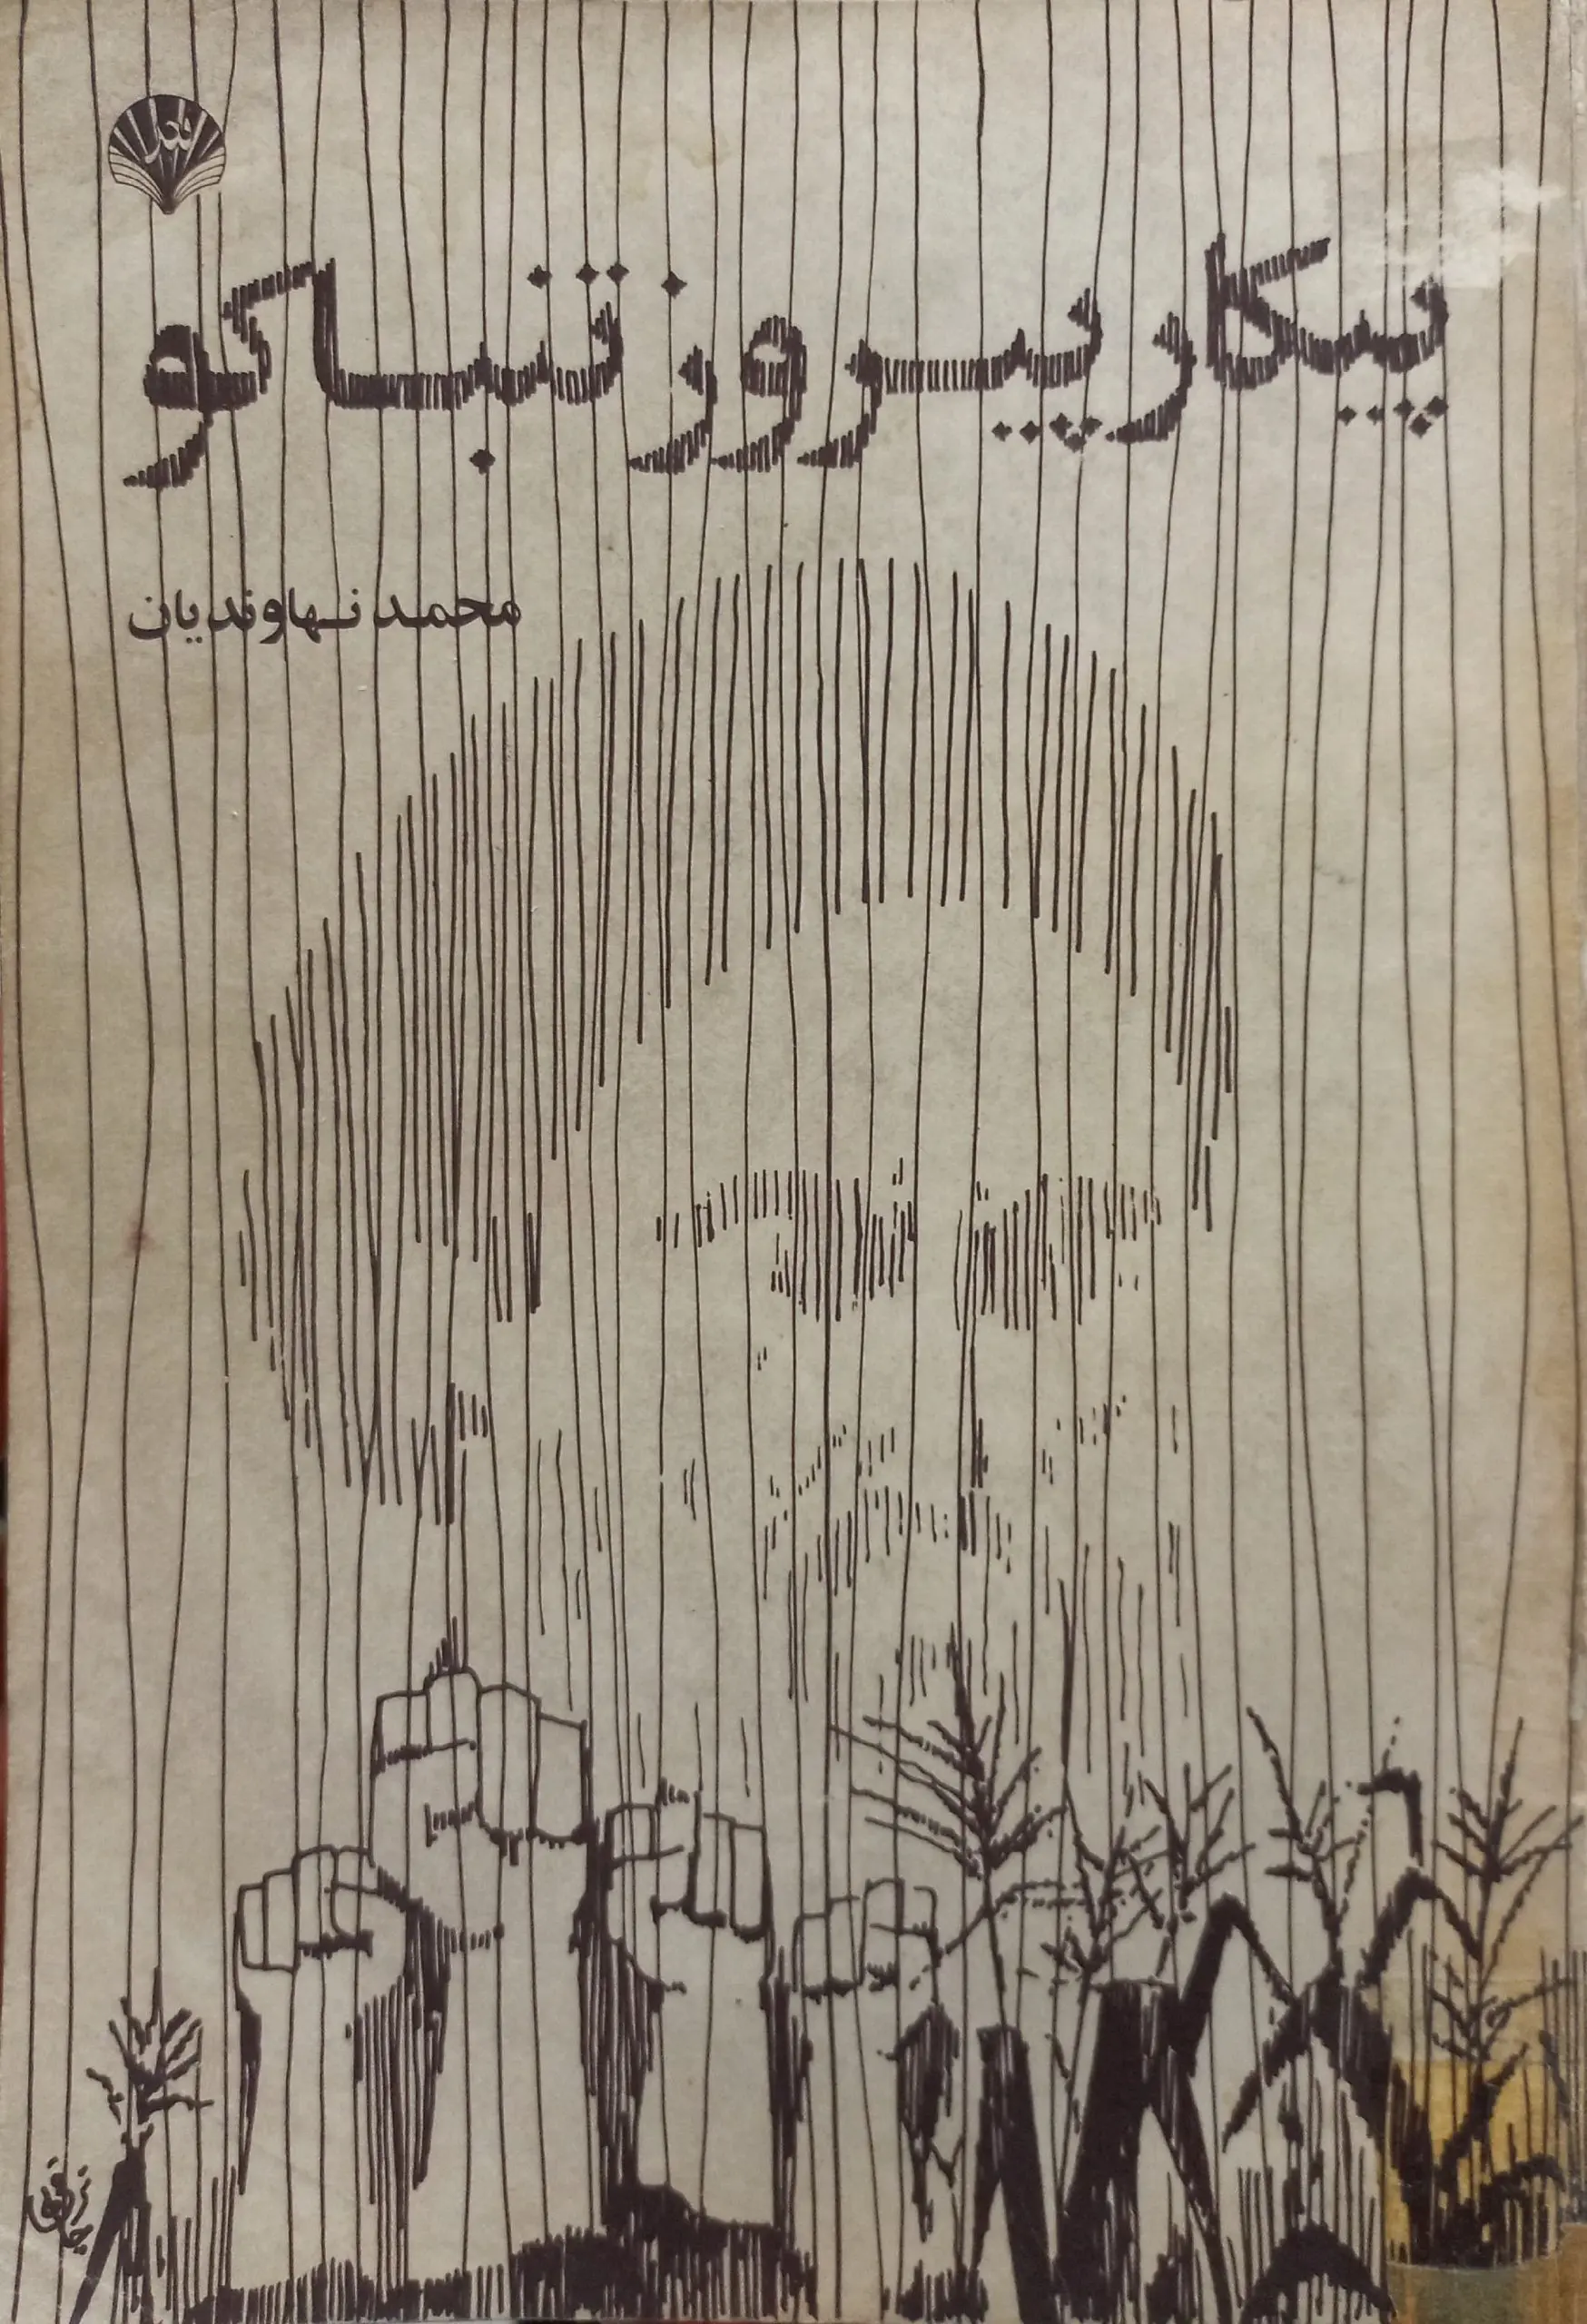 فجر
پیکار پیروز تنباکو
محمد نهاوندیان